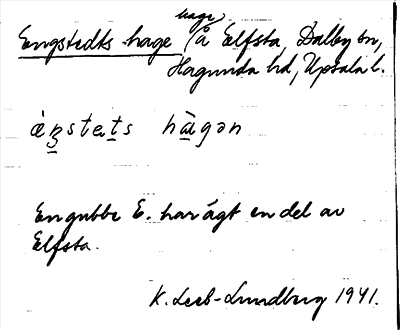 hage,
Engstedts hage (å Elfsta, Dalby sn,
Hagunda hd, Upsala l.
èŋsteṯs hàgən
En gubbe E. har ägt en del av
Elfsta.
K. Leeb-Lundberg 1941.